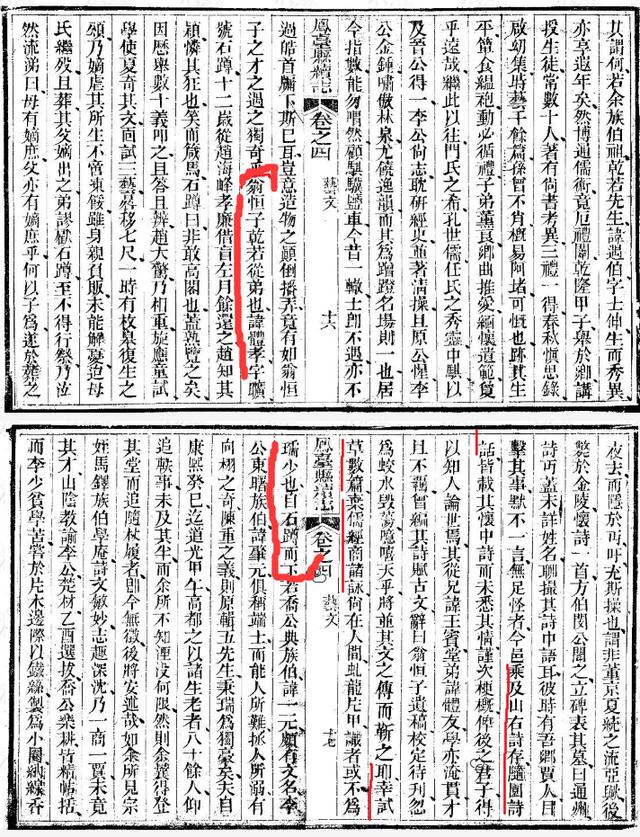 其謂何若余族伯祖乾若先生諱過伯字士伸生而秀異
亦享遐年矣然博通儒術竟厄禮闈乾隆甲子舉於鄉講
授生徒常數十人著有尚書考異三禮一得春秋慎思錄
啟幼集時藝千餘篇孫曾不肖概易阿堵可慨也跡其生
平簞食縕袍動必循禮子弟薰良鄉曲推愛緬懷遺範夐
乎遠哉繼此以往門氏之希孔世儒任氏之秀靈中騏以
及吾公得一李公尚志耽研經史並著清操且原公惺李
公金鍾嘯傲林泉尤饒逸韻而其為蹭蹬名場則一也居
今指數能勿喟然顧騏驥鹽車今昔一轍士卽不遇亦不
鳳臺縣續志 卷之四 藝文 十六
過皓首牖下斯已耳豈意造物之顛倒播弄竟有如翁恒
子之才之遇之獨奇乎翁恒子乾若從弟也諱體孝字曠
號石蹲十二歲從趙海峰孝廉借盲左月餘還之趙知其
穎憐其狂也笑而箴焉石蹲曰非敢高閣也蓋熟覽之矣
因歷舉數十義叩之且答且辨趙大驚乃相重旋應童試
學使夏奇其文面試三藝晷移七尺一時有枚皋復生之
頌乃嫡虐其所生不啻東餒雖身親負販未能解憂迨母
氏繼歿且葬其父嫡出之弟謬獻石蹲至不得行祭乃泣
然流涕曰母有嫡庶父亦有嫡庶乎何以子為遂於葬之
夜去而隱於丏吁尤斯操也謂非董京夏統之流亞歟後
斃於金陵懷詩一首方伯閔公閭之立碑表其墓曰通州
詩丏蓋未詳姓名聊撮其詩中語耳彼時有吾鄉賈人目
擊其事默不一言無足怪者今邑乘及山右詩存隨園詩
話皆載其懷中詩而未悉其情謹次梗概俾後之君子得
以知人論世焉其從兄諱王賓堂弟諱體友學亦淹貫才
且不羈曾編其詩賦古文辭曰翁恒子遺稿校定待刊忽
為蛟水毀蕩噫嘻天乎將並其文之傳而靳之耶幸試
草數篇棄儒經商諸詠尚在人間虬龍片甲識者或不為
鳳臺縣續志 卷之四 藝文 十七
瑞少也自石蹲而下若喬公典族伯諱一元頗有文名李
公東曙族伯諱肇元俱稱端士而能人所難拯人所溺有
向栩之奇陳重之義則原蘄五先生秉瑞為獨豪矣夫自
康熙癸巳迄道光甲午高都之以諸生老者八十餘人仰
追軼事未及其半而余所不知湮沒何限然則余冀得登
其堂而追隨杖履者卽今無徵後將安述哉如余所見宗
姪馬鐸族伯學庵詩文敏妙志趣深沈乃一商一賈未竟
其才山陰教諭李公楚材乙酉選拔喬公樂耕皆績帖括
而李少貧學苦嘗於片木邊際以鐵絲製為小閣組線香